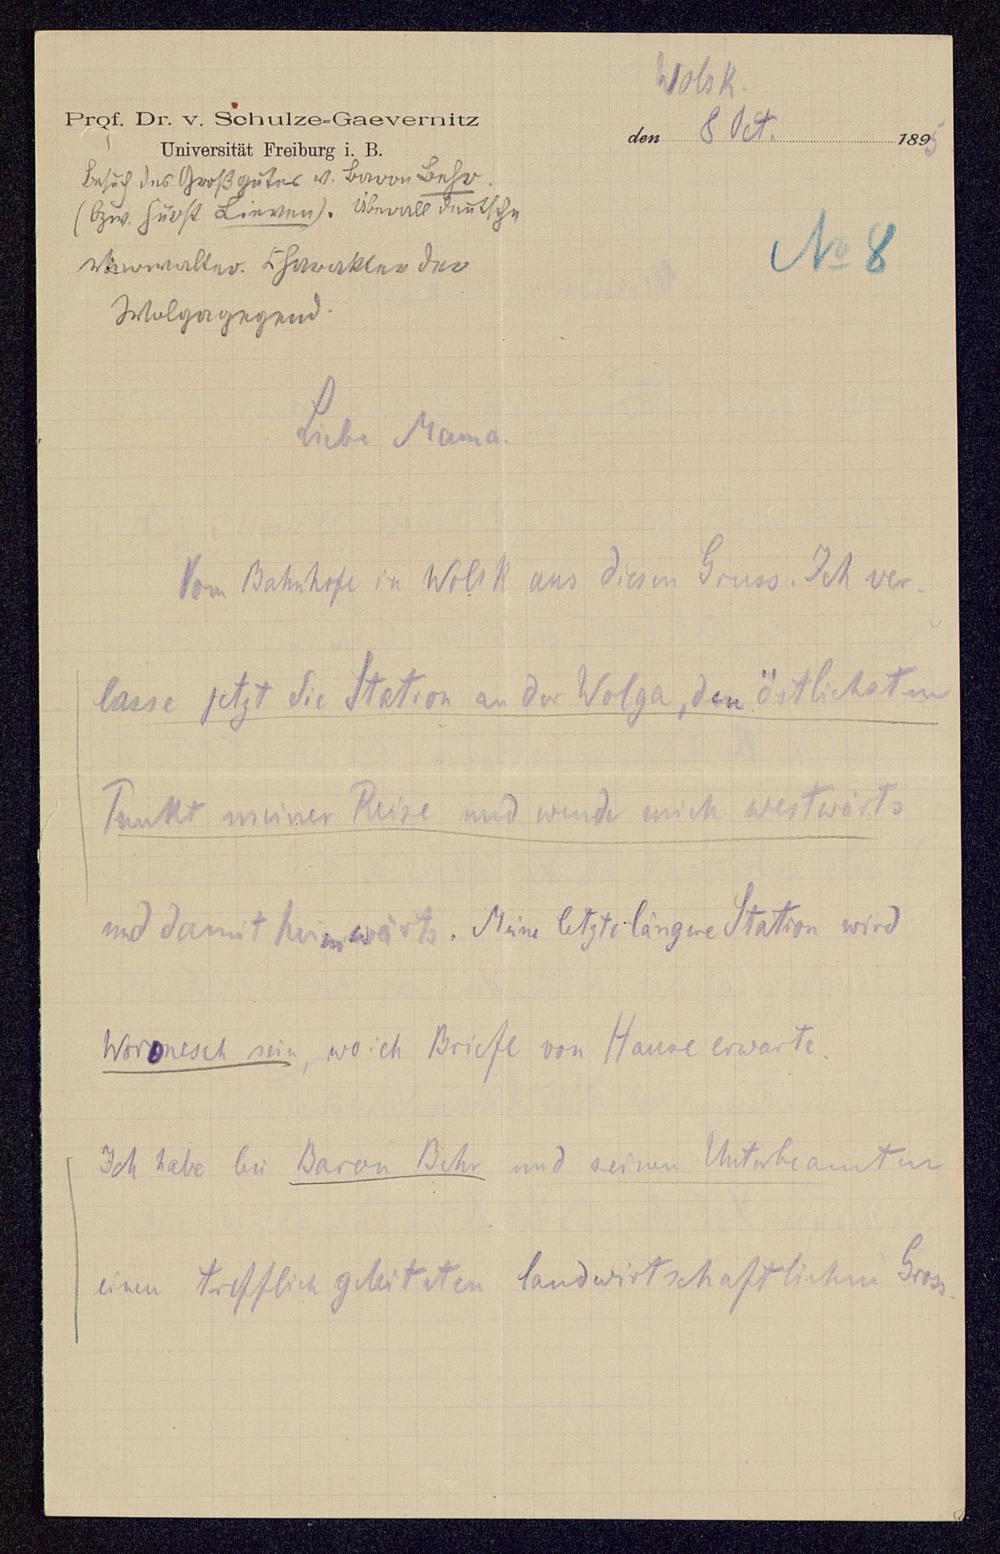 Wolsk.
Prof. Dr. v. Schulze-Gaevernitz
Universität Freiburg i. B.
den 8 Oct. 1895
Besuch des Großgutes v. Baron Behr.
(bzw. Fürst Lieven). Überall deutsche
Verwalter. Charakter der
Wolgagegend.
No 8
Liebe Mama.
Vom Bahnhofe in Wolsk aus diesen Gruss. Ich ver-
lasse jetzt die Station an der Wolga, den östlichsten
Punkt meiner Reise und wende mich westwärts
und damit heimwärts. Meine letzte längere Station wird
Woronesch sein, wo ich Briefe von Hause erwarte.
Ich habe bei Baron Behr und seinen Unterbeamten
einen trefflich geleiteten landwirtschaftlichen Gross-